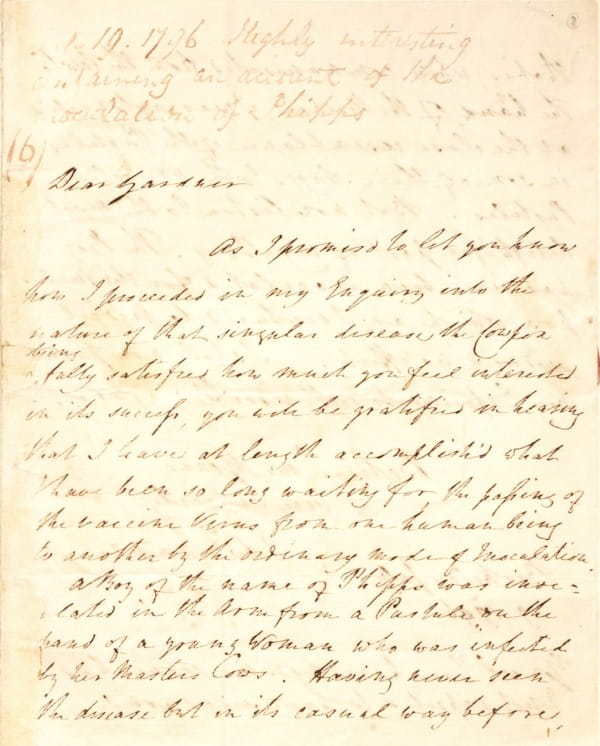 19. 1796 Highly interesting
containing an account of the
inoculation of Phipps
(6)
Dear Gardner
As I promis'd to let you know
how I proceeded in my Enquiry into the
nature of that singular disease the Cowpox
being
& fully satisfied how much you feel interested
in its success, you will be gratified in hearing
that I have at length accomplish'd what
I have been so long waiting for, the passing of
the vaccine Virus from one human being
to another by the ordinary mode of Inoculation.
A Boy of the name of Phipps was inocu=
lated in the Arm from a Pustule on the
hand of a young Woman who was infected
by her Masters Cows. Having never seen
the disease but in its casual way before,